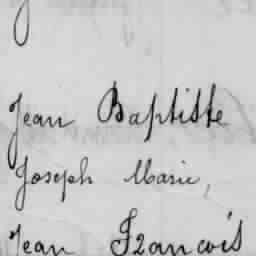 Jean Baptiste
Joseph Marie,
Jean François